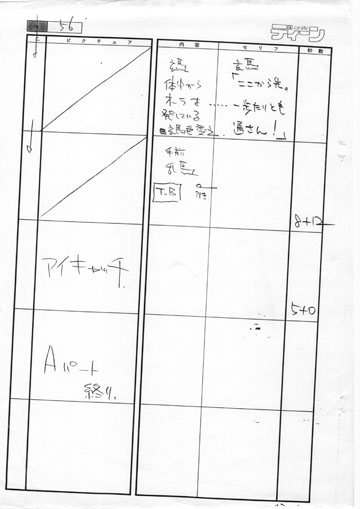 56
ディーン
ピクチュア
内容
セリフ
秒数
玄馬
体中から
オーラを
発している
玄馬
「ここから先。
一歩たりとも
通さん！」
手前
乱馬
T.B.
8+12
アイキャッチ
5+0
Aパート
終り.